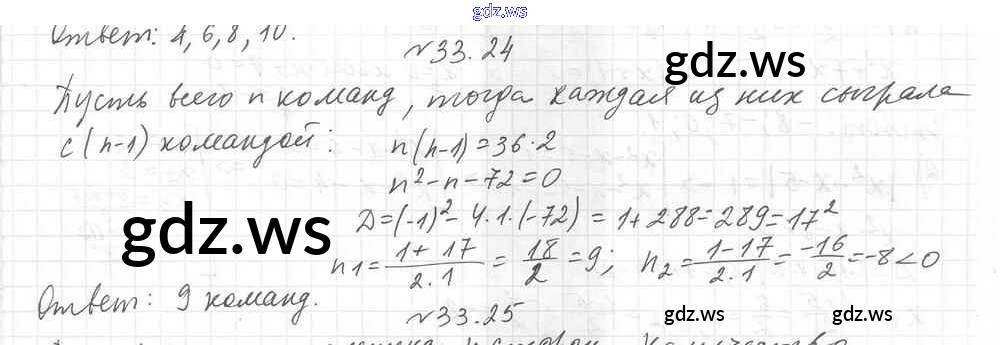 gdz.ws
Ответ: 4, 6, 8, 10.
№33.24
gdz.ws
Пусть всего n команд, тогда каждая из них сыграла
с (n-1) командой: n(n-1)=36·2
n²-n-72=0
gdz.ws
D=(-1)²-4·1·(-72)=1+288=289=17²
n₁=(1+17)/(2·1)=18/2=9; n₂=(1-17)/(2·1)=-16/2=-8<0
Ответ: 9 команд.
№33.25
gdz.ws gdz.ws